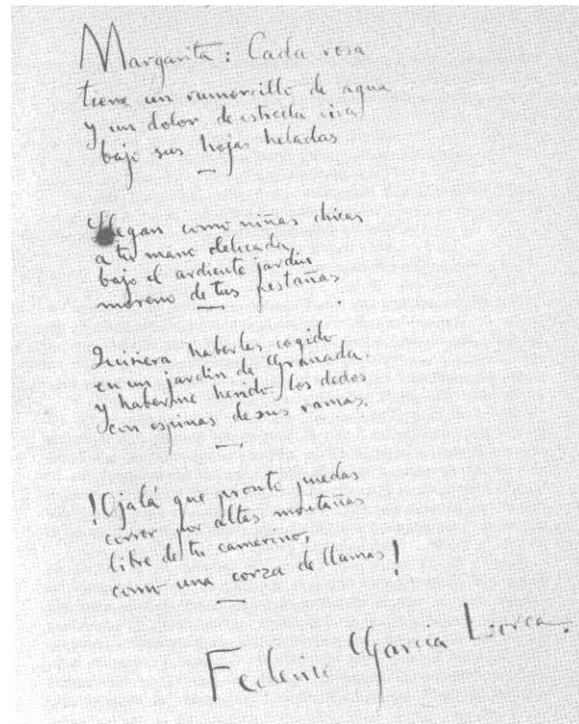 Margarita: Cada rosa
tiene un rumorcillo de agua
y un dolor de estrella viva
bajo sus hojas heladas
Llegan como niñas chicas
a tu mano delicada,
bajo el ardiente jardín
moreno de tus pestañas.
Quisiera haberlas cogido
en un jardín de Granada.
y haberme herido los dedos
con espinas de sus ramas.
!Ojalá que pronto puedas
correr por altas montañas
libre de tu camerino,
como una corza de llamas!
Federico García Lorca.